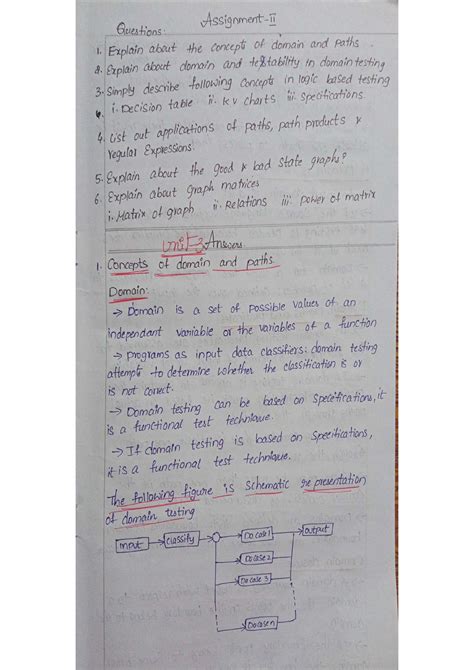 Assignment-II
Questions:
1. Explain about the concepts of domain and paths.
2. Explain about domain and testability in domain testing
3. Simply describe following concepts in logic based testing
i. Decision table ii. KV charts iii. Specifications
4. List out applications of paths, path products &
regular Expressions.
5. Explain about the good & bad state graphs?
6. Explain about graph matrices
i. Matrix of graph ii. Relations iii. power of matrix
Unit-3 Answers
1. Concepts of domain and paths
Domain:
→ Domain is a set of possible values of an
independant variable or the variables of a function
→ programs as input data classifiers: domain testing
attempts to determine whether the classification is or
is not correct.
→ Domain testing can be based on specifications, it
is a functional test technique.
→ If domain testing is based on specifications,
it is a functional test technique.
The following figure is schematic representation
of domain testing
input classify Do case 1 output
Do case 2
Do case 3
Do case n